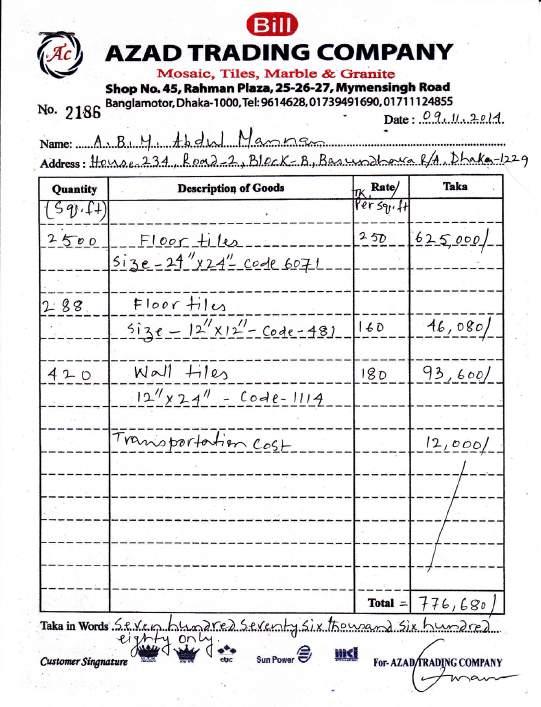 Bill
Ac
AZAD TRADING COMPANY
Mosaic, Tiles, Marble & Granite
Shop No. 45, Rahman Plaza, 25-26-27, Mymensingh Road
No. 2186 Banglamotor, Dhaka-1000, Tel: 9614628, 01739491690, 01711124855
Date : 09.11.2014
Name: A.B.M. Abdul Mannan
Address : House-234, Road-2, Block-B, Basundhara R/A, Dhaka-1229
Quantity Description of Goods Rate/ Taka
(Sq.ft) TK. Per sq.ft
2500 Floor tiles 250 625,000/
Size - 24"x24" - Code 6071
288 Floor tiles
Size - 12"x12" - Code - 481 160 46,080/
420 Wall tiles 180 93,600/
12"x24" - Code - 1114
Transportation Cost 12,000/
Total = 776,680/
Taka in Words Seven hundred seventy six thousand six hundred
eighty only.
Customer Singnature Sun Power For- AZAD TRADING COMPANY